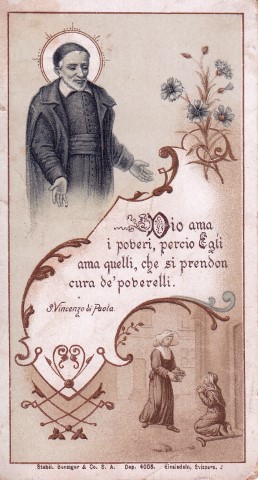 Dio ama
i poveri, percio Egli
ama quelli, che si prendon
cura de' poverelli.
S. Vincenzo di Paola.
Stabil. Benziger & Co. S. A. Dep. 4008. Einsiedeln, Svizzera.